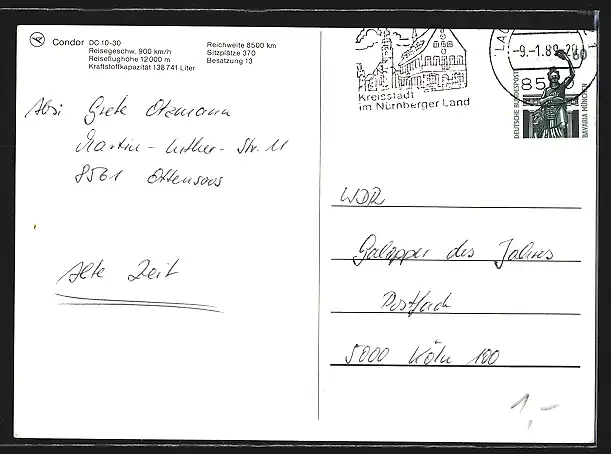 Condor DC 10-30
Reisegeschw. 900 km/h
Reiseflughöhe 12000 m
Kraftstoffkapazität 138 741 Liter
Reichweite 8500 km
Sitzplätze 370
Besatzung 13
Kreisstadt
im Nürnberger Land
-9.-1.89-20
85
60
DEUTSCHE BUNDESPOST
BAVARIA MÜNCHEN
Abs: Grete Otzmann
Martin-Luther-Str. 11
8561 Ottensoos
Alte Zeit
WDR
Galopper des Jahres
Postfach
5000 Köln 100
1,-